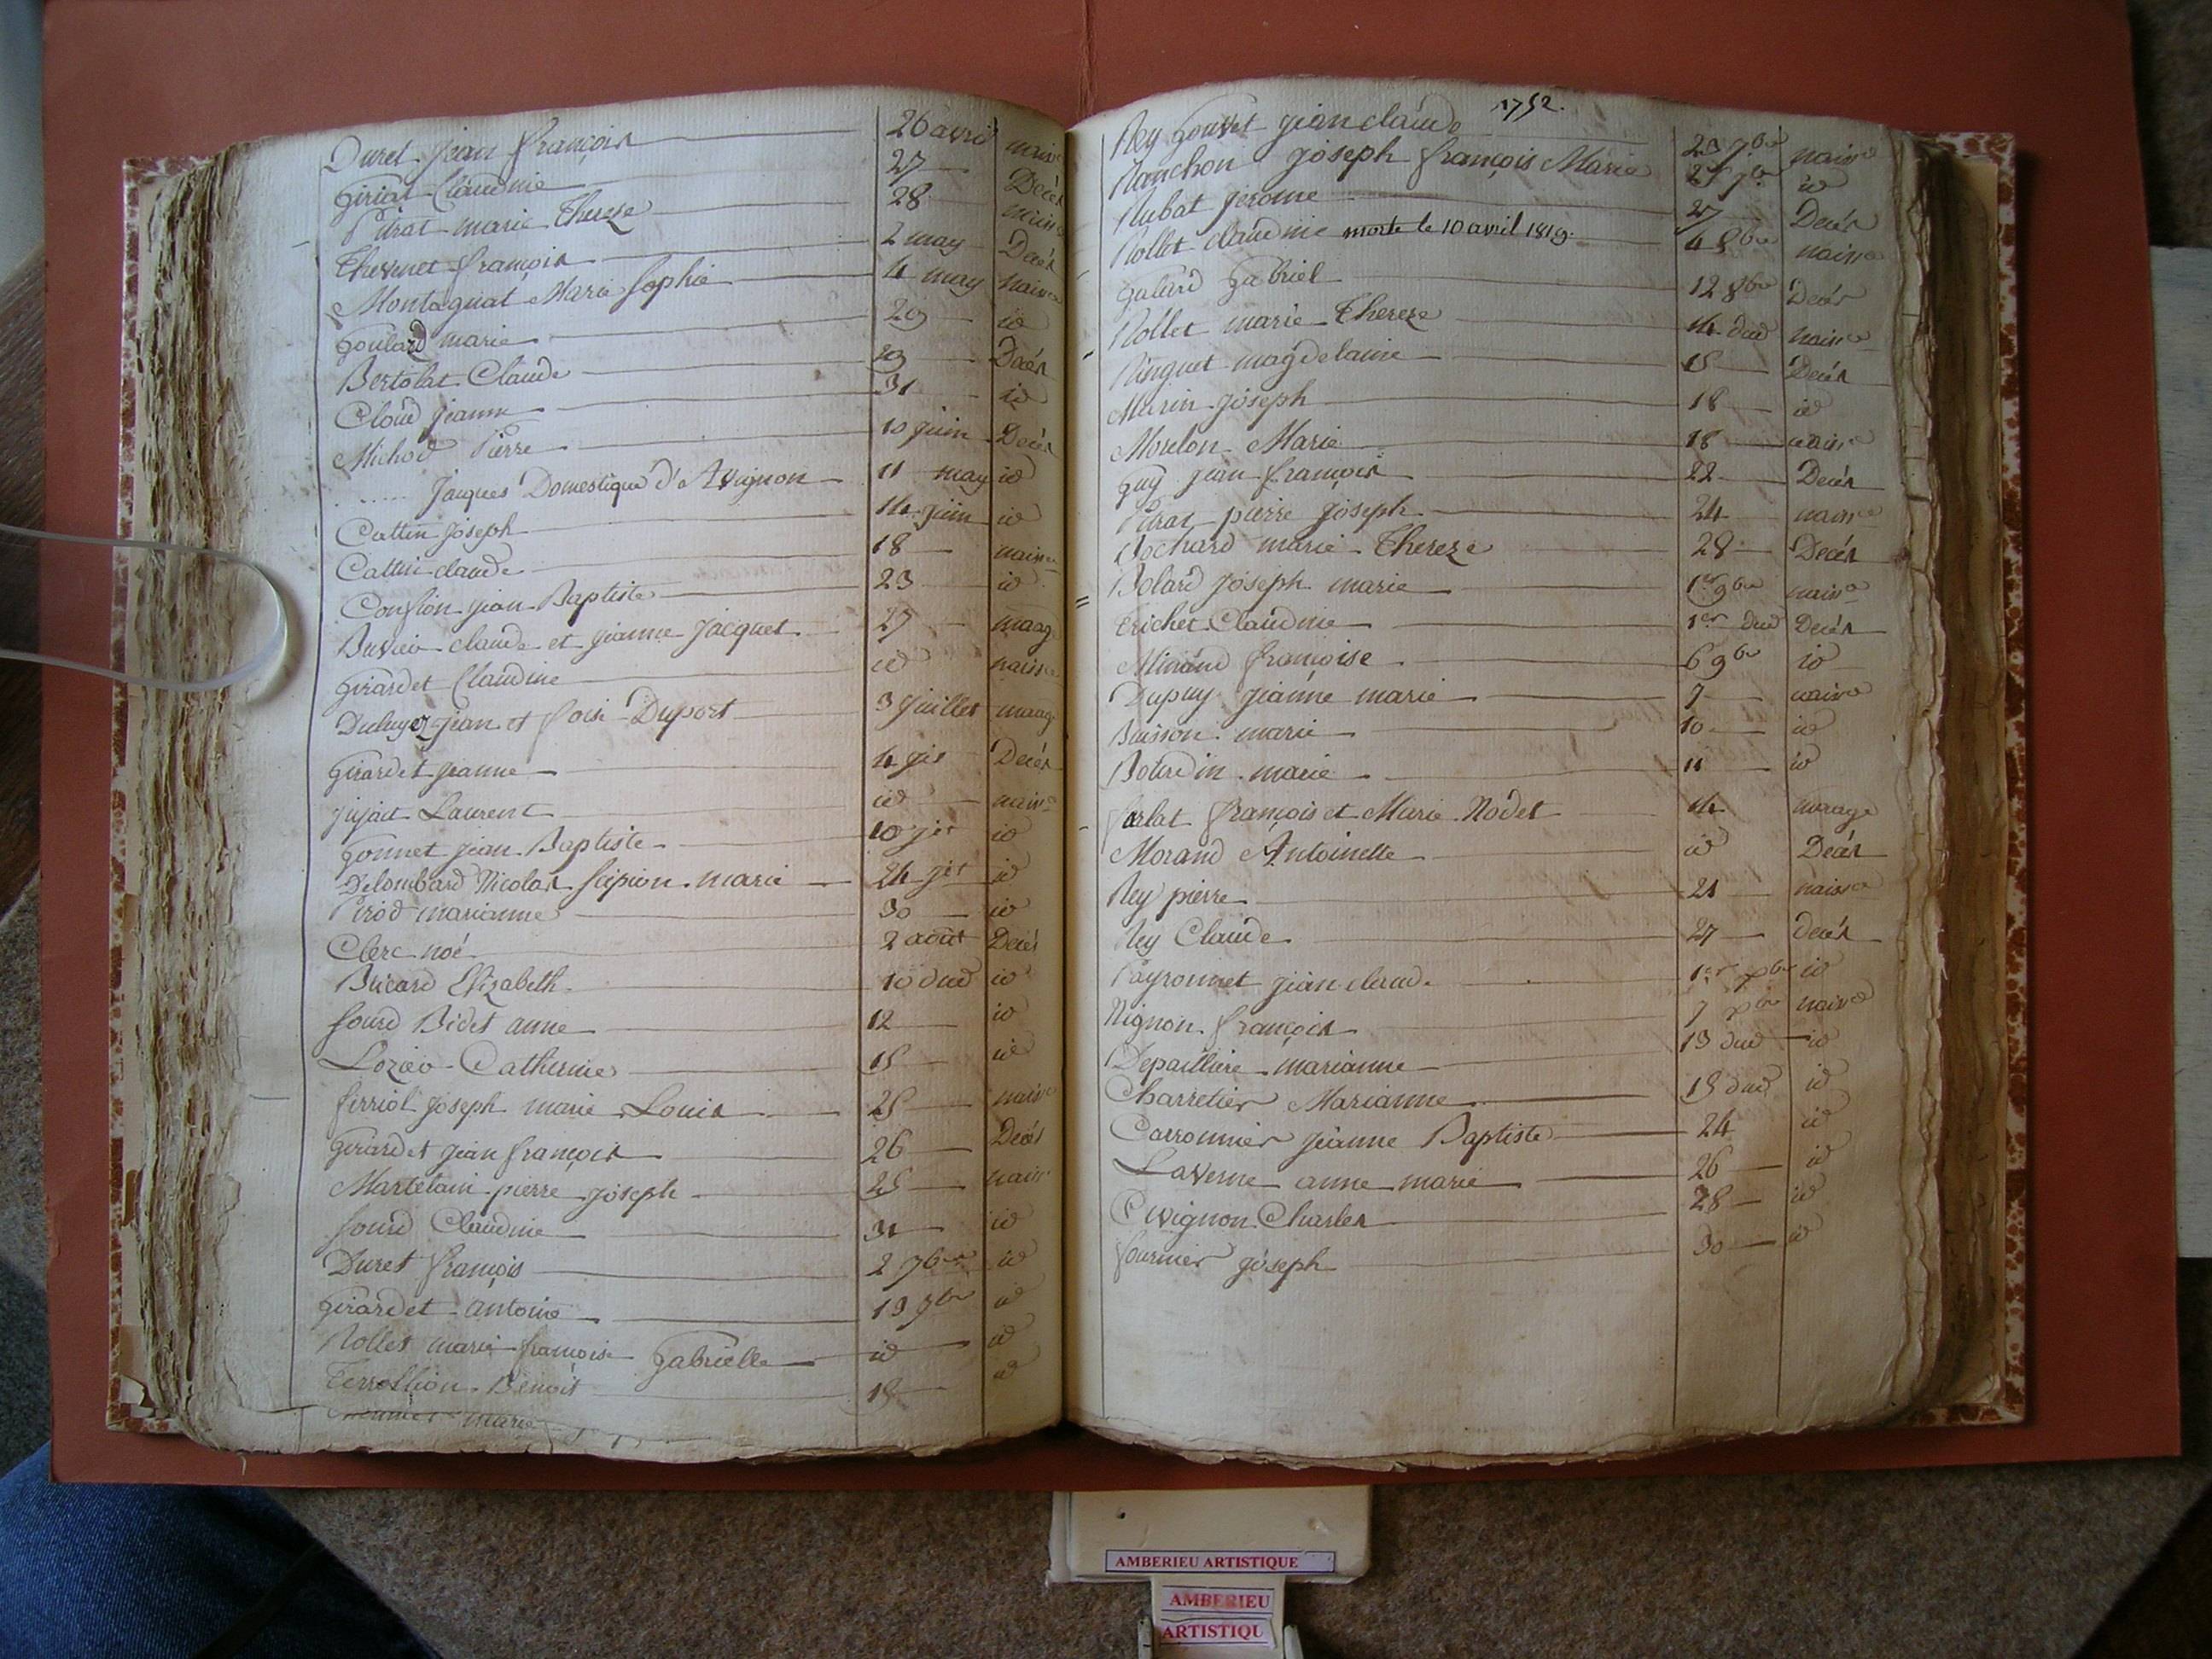 Duret jean françois 26 avril naisce
Giriat Claudine 27 Decès
Pirat marie Thereze 28 naisce
Thevenet françois 2 may Decès
Montagnat Marie Sophie 4 may naisce
Goulard marie 29 id
Bertolat Claude 29 Decès
Cloud jeanne 31 id
Michod Pierre 10 juin Decès
..... Jacques Domestique d'Avignon 11 may id
Cattin joseph 14 juin id
Cattin claude 18 naisce
jean Baptiste 23 id
Buvier claude et jeanne jacquet 27 maag
Girardet Claudine id naisce
jean et foise Duport 3 juillet maag
Girardet jeanne 4 jet Decès
jujat Laurent id naisce
Gonnet jean Baptiste 10 jet id
Delombard Nicolas Scipion marie 24 jet id
Pirod marianne 30 id
Clerc noé 2 août Decès
Bricard Elizabeth 10 dud id
Sourd Bidet anne 12 id
Lozier Catherine 15 id
ferriol joseph marie Louis 25 naisce
Girardet jean françois 26 Decès
Martelain pierre joseph 25 naisce
Sourd Claudine 31 id
Duret françois 2 7bre id
Girardet antoine 13 7bre id
Rollet marie françoise Gabrielle id id
Terrollion Benoit 18 id
marie
1752.
Rey Gouvet jean claude 23 7bre naisce
Ranchon joseph françois Marie 25 7bre id
Rubat jerome 27 Decès
Rollet claudine morte le 10 avril 1819. 4 8bre naisce
Galard Gabriel 12 8bre Decès
Rollet marie Thereze 14 dud naisce
Ringuet magdelaine 15 Decès
Marin joseph 18 id
Moulon Marie 18 naisce
Guy jean françois 22 Decès
Pirat pierre joseph 24 naisce
Bochard marie Thereze 28 Decès
Bolard joseph marie 1er 9bre naisce
Trichet Claudine 1er dud Decès
Minand françoise 6 9bre id
Dupuy jeanne marie 7 naisce
Buisson marie 10 id
Bourdin marie 11 id
farlat françois et Marie Nodet 14 marage
Morand Antoinette id Decès
Rey pierre 21 naisce
Rey Claude 27 decès
Payronnet jean claude 1er xbre id
Nignon françois 7 xbre naisce
Depailliere marianne 13 dud id
Charretier Marianne 15 dud id
Carronnier jeanne Baptiste 24 id
Laverne anne marie 26 id
Pivignon Charles 28 id
fournier joseph 30 id
AMBERIEU ARTISTIQUE
AMBERIEU
ARTISTIQU